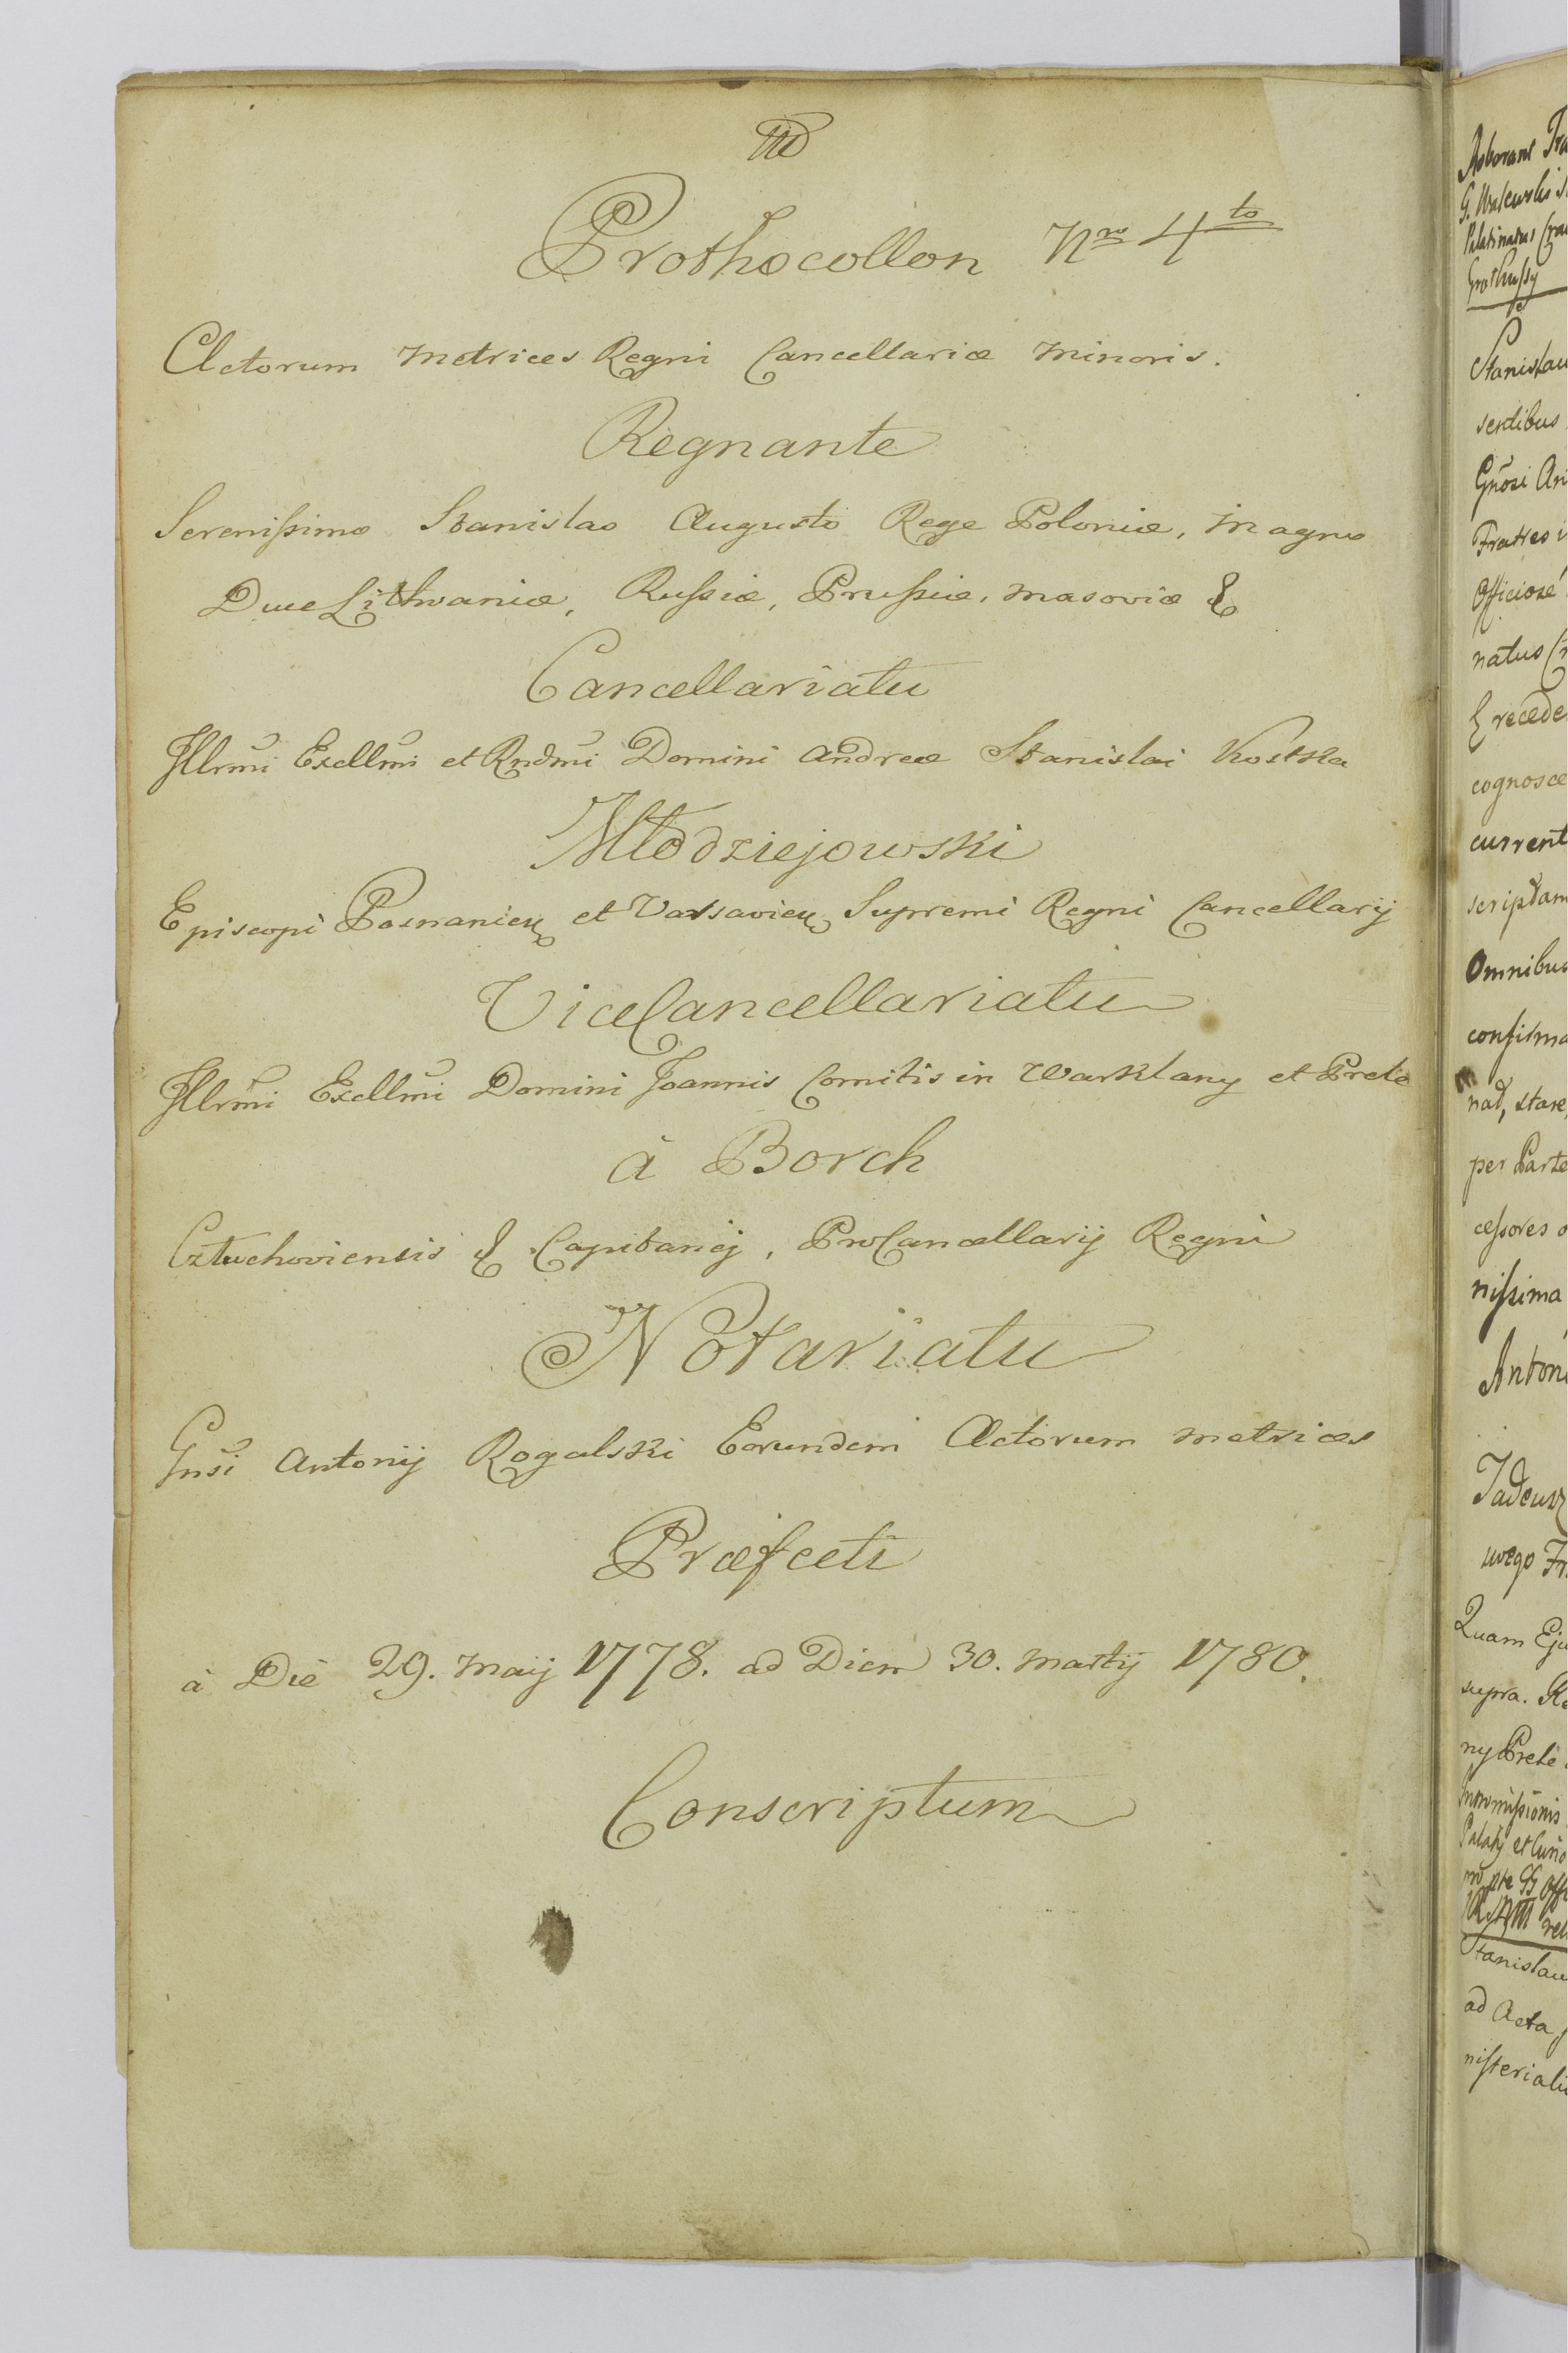 Prothocollon Nro 4to
Actorum Metrices Regni Cancellariæ Minoris.
Regnante
Serenißimo Stanislao Augusto Rege Poloniæ, Magno
Duce Lithvaniæ, Rußiæ, Prußiæ, Masoviæ &
Cancellariatu
Jllrmi Excllmi et Rndmi Domini Andreæ Stanislai Kostka
Młodziejowski
Episcopi Posnanien et Varsavien Supremi Regni Cancellarij
ViceCancellariatu
Jllrmi Excllmi Domini Joannis Comitis in Warklany et Prele
à Borch
Człuchoviensis & Capitanej, ProCancellarij Regni
Notariatu
Gnsi Antonij Rogalski Eorundem Actorum Metrices
Præfecti
à Die 29. Maij 1778. ad Diem 30. Martij 1780.
Conscriptum
Stanislau
sentibus
Gnosi An
Fratres
Officiose
natus
& recede
cognosce
current
scriptam
Omnibus
confirma
per Parte
ceßores
nißima
Antoni
Tadeusz
Quam Eju
supra. Re
ny Prele
Stanislau
ad Acta
nisterialiu